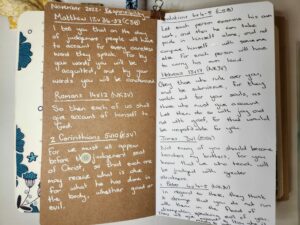 November 2022 - Responsibility
Matthew 12v36-37 (CSB)
I tell you that on the day
of judgement people will have
to account for every careless
word they speak. For by
your words you will be
acquitted, and by your
words you will be condemned.
Romans 14v12 (NKJV)
So then each of us shall
give account of himself to
God.
2 Corinthians 5v10 (ESV)
For we must all appear
before the judgement seat
of Christ, so that each one
may receive what is due
for what he has done in
the body, whether good or
evil.
Galatians 6v4-5 (CSB)
Let each person examine his own
work, and then he can take
pride in himself alone, and not
compare himself with someone
else. For each person will have
to carry his own load.
Hebrews 13v17 (NKJV)
Obey those who rule over you,
and be submissive, for they
watch out for your souls, as
those who must give account.
Let them do so with joy and
not with grief, for that would be
unprofitable for you.
James 3v1 (ESV)
Not many of you should become
teachers, my brothers, for you
know that we who teach will
be judged with greater
strictness.